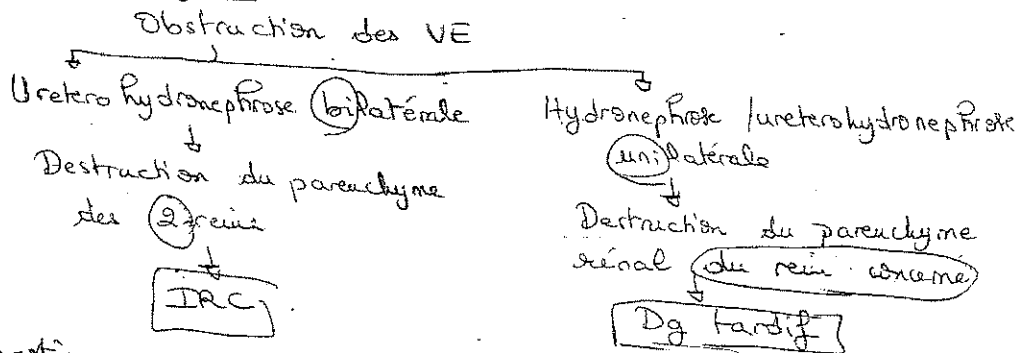 Obstruction des VE
Uretero hydronephrose bilatérale
Destruction du parenchyme
des 2 reins
IRC
Hydronephrose /ureterohydronephrose
unilatérale
Destruction du parenchyme
rénal du rein concerné
Dg tardif